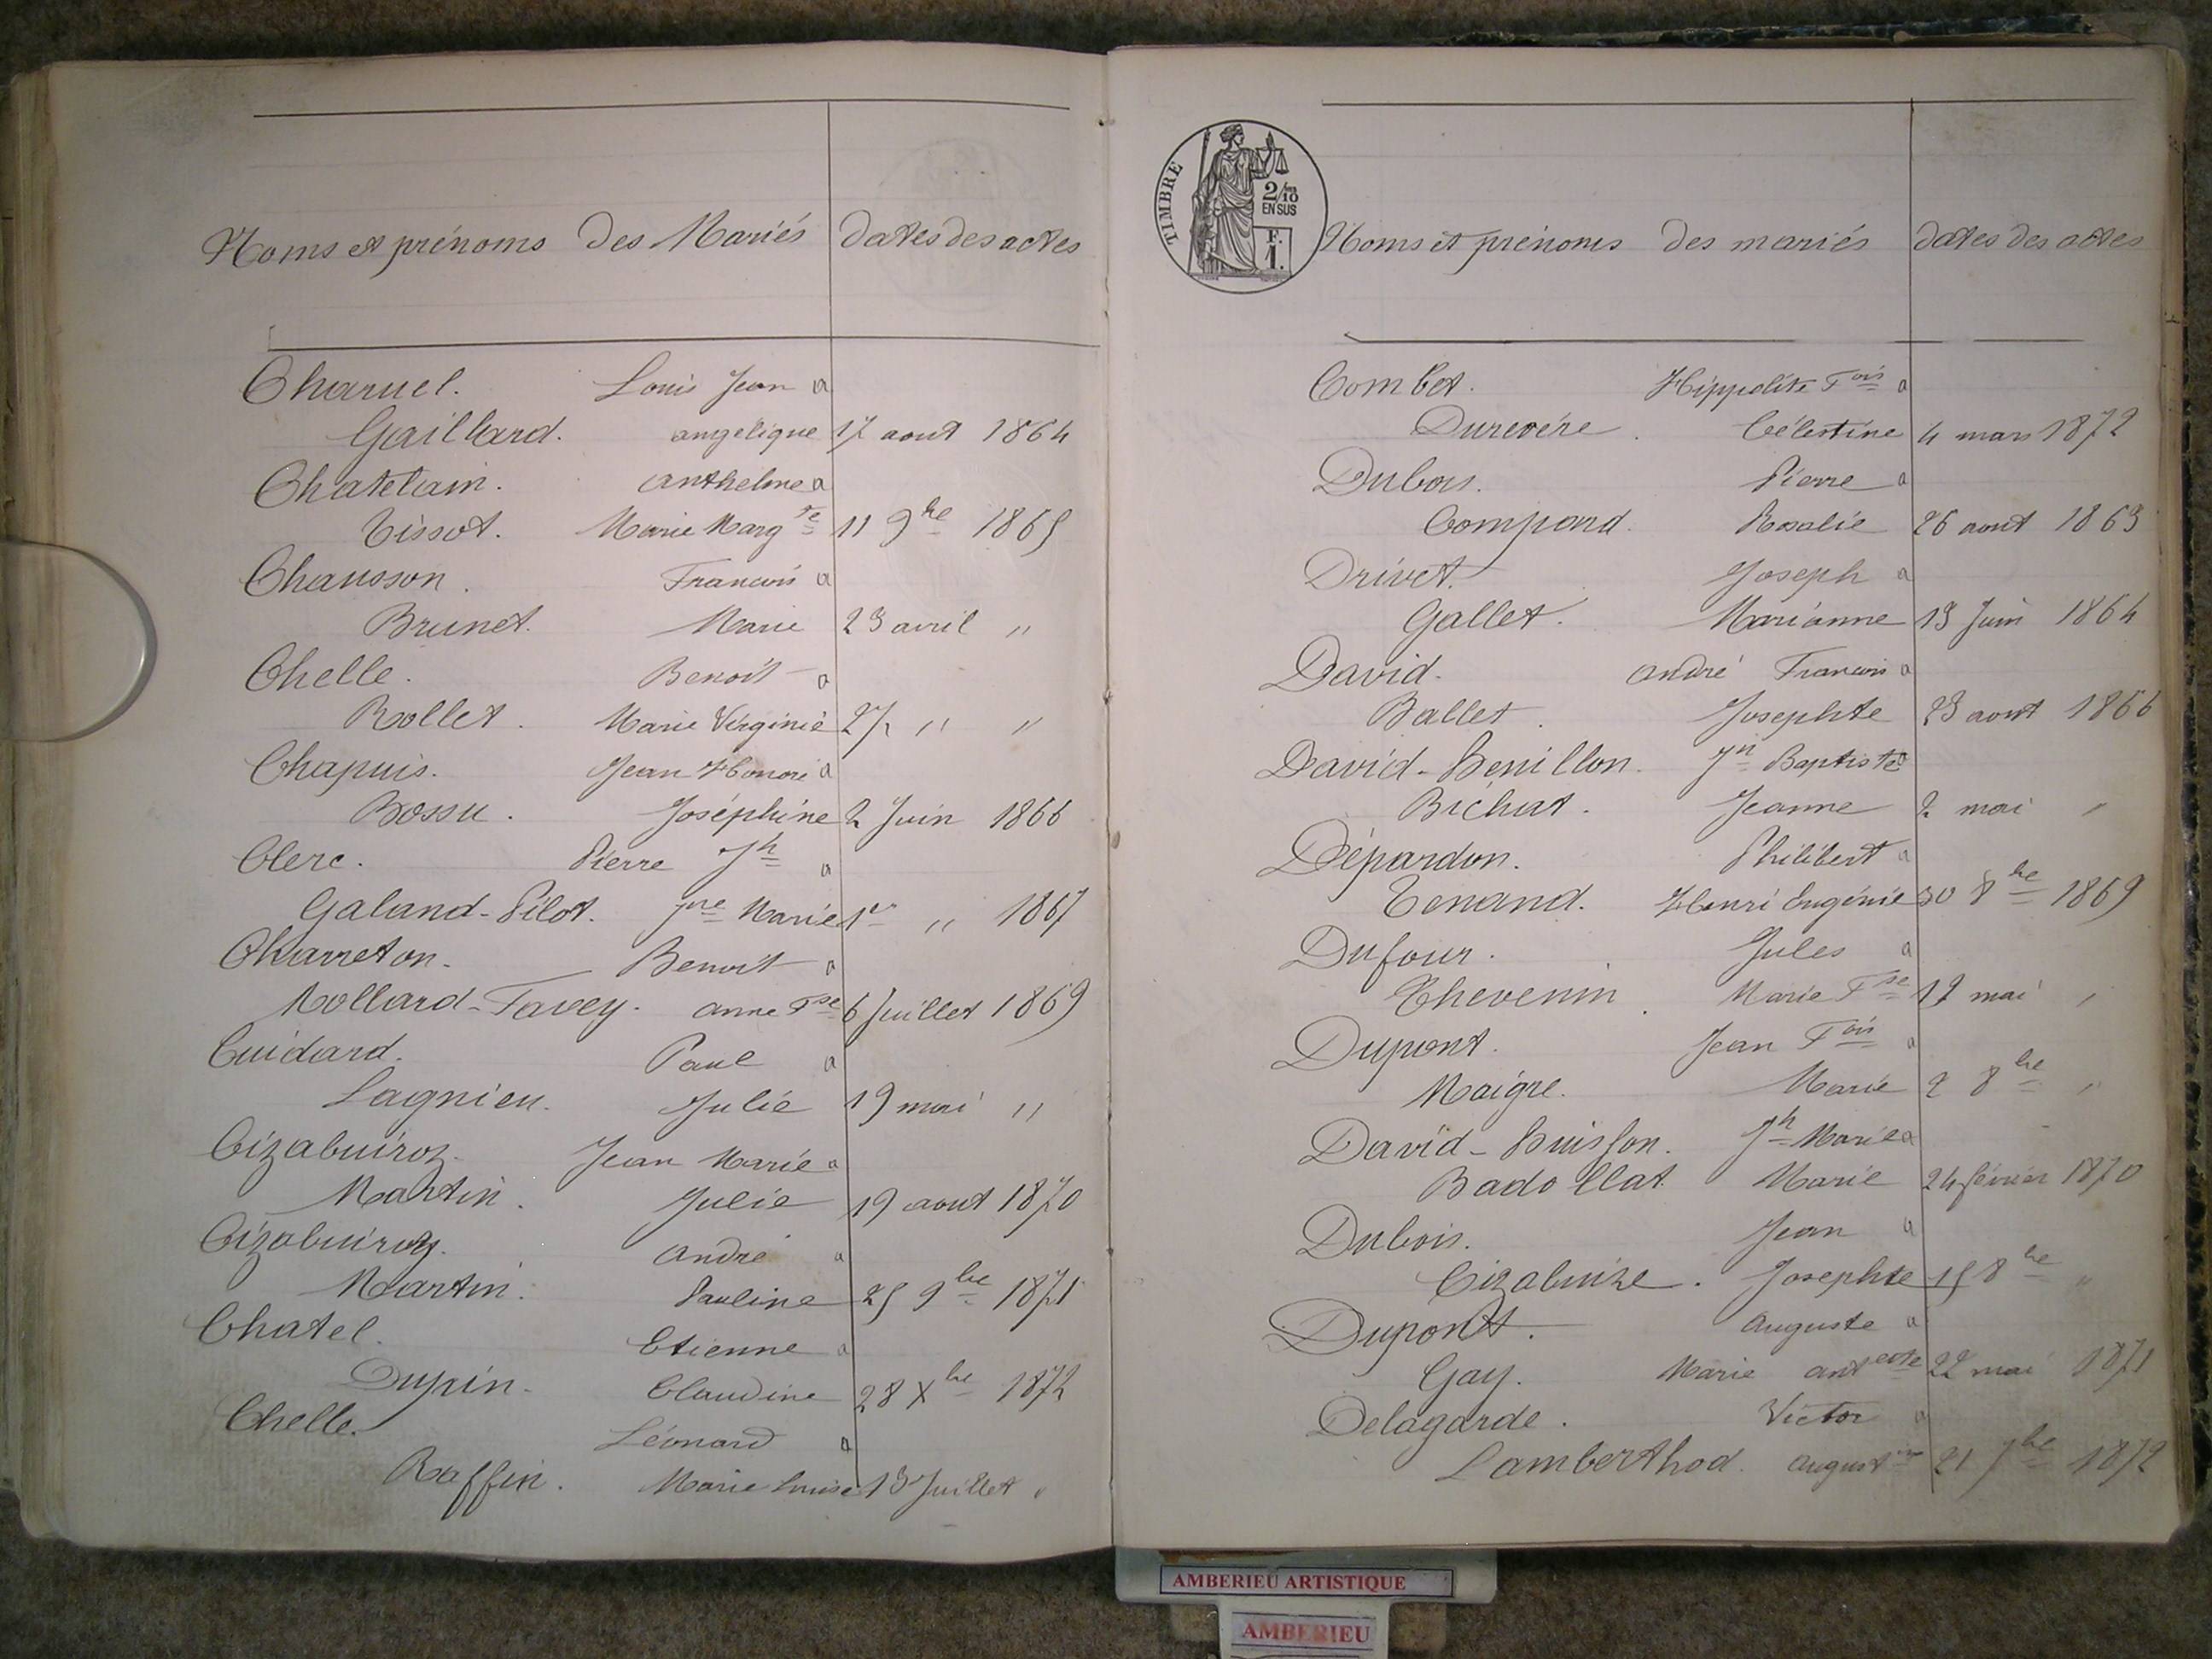 Noms et prénoms des Mariés dates des actes
Charuel. Louis Jean a
Gaillard. angélique 17 aout 1864
Chatelain. anthelme a
Tissot. Marie Margte 11 9bre 1865
Chausson. Francois a
Brunet. Marie 23 avril "
Chelle. Benoit a
Rollet. Marie Virginie 27 " "
Chapuis. Jean Honoré a
Bossu. Joséphine 2 Juin 1866
Clerc. Pierre Jh a
Galand-Pilot. Jne Marie 1er " 1867
Charreton. Benoit a
Mollard-Tavey. anne Fse 6 Juillet 1869
Cuidard. Paul a
Lagnieu. Julie 19 mai "
Cizabuiroz. Jean Marie a
Martin. Julie 19 aout 1870
Cizabuiroz. andré a
Martin. Pauline 25 9bre 1871
Chatel. Etienne a
Dupin. Claudine 28 Xbre 1872
Chelle. Léonard a
Raffin. Marie Louise 13 Juillet "
TIMBRE
2/10 EN SUS
F. 1.
Noms et prénoms des mariés dates des actes
Combet. Hippolite Fois a
Durevére. Célestine 4 mars 1872
Dubois. Pierre a
Compard. Rosalie 26 aout 1863
Drivet. Joseph a
Gallet. Marianne 13 Juin 1864
David. andré Francois a
Ballet. Josephte 23 aout 1866
David-Henillon. Jn Baptiste a
Bichat. Jeanne 2 mai "
Dépardon. Philibert a
Tenand. Henri Eugénie 30 8bre 1869
Dufour. Jules a
Thevenin. Marie Fse 12 mai "
Dupont. Jean Fois a
Maigre. Marie 2 8bre "
David-Huisson. Jh Marie a
Badollat. Marie 24 février 1870
Dubois. Jean a
Cizabuize. Josephte 15 8bre "
Dupont. auguste a
Gay. Marie antette 22 mai 1871
Delagarde. Victor a
Lamberthod. augustine 21 7bre 1872
AMBERIEU ARTISTIQUE
AMBERIEU